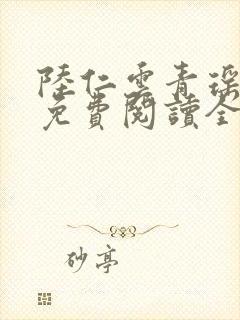 陸仁雲青瑤
免費閱讀全
砂亭